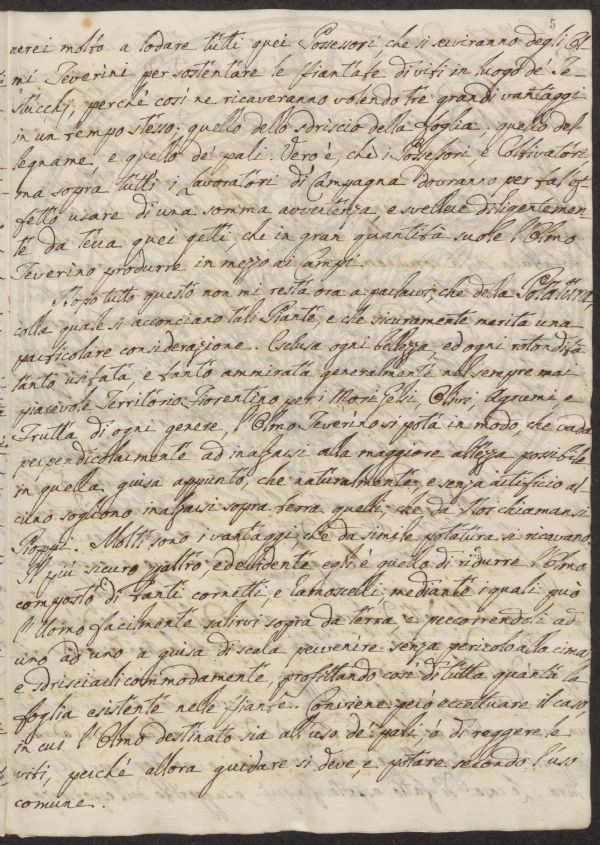 5
nerei molto a lodare tutti quei Possessori che si serviranno degli Ol
mi Teverini per sostentare le Piantate di viti in luogo de' Te-
stucchi, perché così ne ricaveranno volendo tre grandi vantaggi
in un tempo stesso: quello dello sdriscio della foglia, quello del
legname, e quello de' pali. Vero è, che i Possessori e Coltivatori
ma sopra tutti i Lavoratori di Campagna dovranno per tal ef-
fetto usare di una somma avvertenza, e svellere diligentemen-
te da terra quei getti, che in gran quantità suole l'Olmo
Teverino produrre in mezzo ai campi.
Dopo tutto questo non mi resta ora a parlarvi, che della Potatura,
colla quale si acconciano tali Piante, e che sicuramente merita una
particolare considerazione. Esclusa ogni bellezza, ed ogni rotondità
tanto usitata, e tanto ammirata generalmente nel sempre mai
piacevole Territorio Fiorentino per i Mori Gelsi, Olivi, Agrumi e
Frutta di ogni genere, l'Olmo Teverino si pota in modo, che vada
perpendicolarmente ad inalzarsi alla maggiore altezza possibile
in quella guisa appunto, che naturalmente, e senza artificio al-
cuno sogliono inalzarsi sopra terra quelli, che da Noi chiamansi
Pioppi. Molti sono i vantaggi, che da simile potatura si ricavano.
Il più sicuro peraltro, ed evidente egli è quello di ridurre l'Olmo
composto di tanti cornetti, e ramoscelli mediante i quali può
l'Uomo facilmente salirvi sopra da terra, e percorrendoli ad
uno ad uno a guisa di scala pervenire senza pericolo alla cima,
e sdrisciarli commodamente, profittando così di tutta quanta la
foglia esistente nelle Piante. Conviene però eccettuare il caso,
in cui l'Olmo destinato sia all'uso de' pali, o di reggere le
viti, perché allora guidare si deve, e potare secondo l'uso
comune.